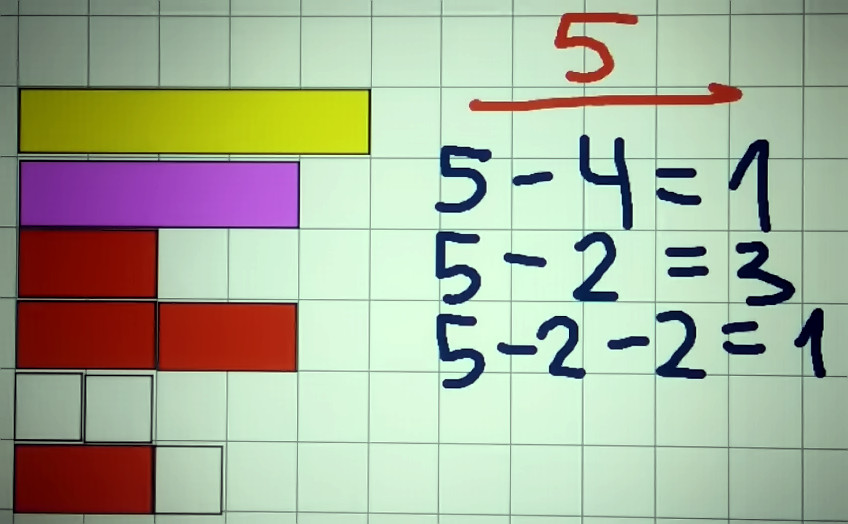 5
5 - 4 = 1
5 - 2 = 3
5 - 2 - 2 = 1